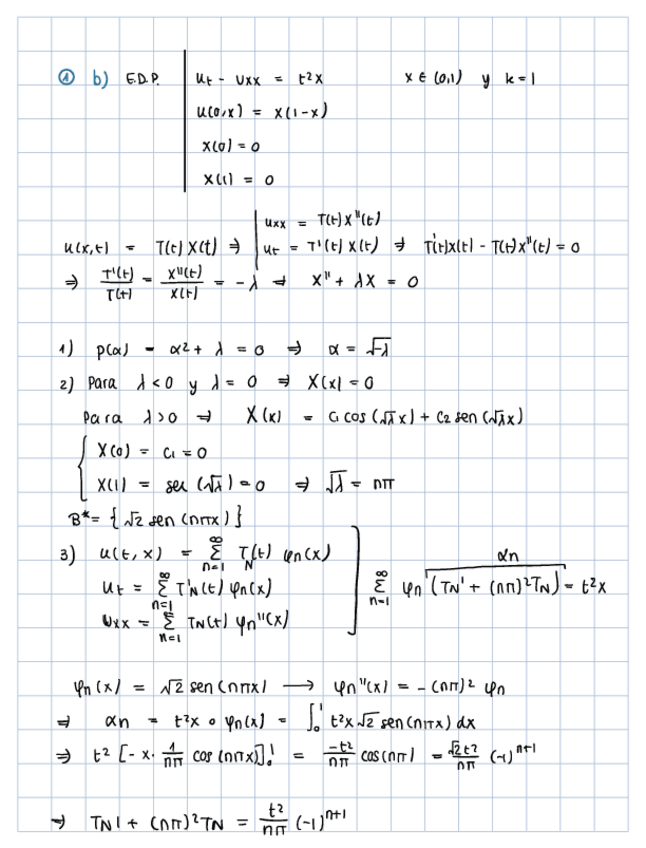 ① b) E.D.P. | ut - uxx = t²x x ∈ (0,1) y k=1
u(0,x) = x(1-x)
X(0) = 0
X(1) = 0
u(x,t) = T(t) X(t) ⇒ | uxx = T(t) X''(t)
ut = T'(t) X(t) ⇒ T'(t)X(t) - T(t)X''(t) = 0
⇒ T'(t)/T(t) = X''(t)/X(t) = -λ → X'' + λX = 0
1) p(α) = α² + λ = 0 ⇒ α = √-λ
2) Para λ<0 y λ = 0 ⇒ X(x) = 0
Para λ>0 ⇒ X(x) = C1 cos(√λ x) + C2 sen(√λx)
{ X(0) = C1 = 0
X(1) = sen(√λ) = 0 ⇒ √λ = nπ
B* = {√2 sen(nπx)}
3) u(t,x) = ∑_{n=1}^{∞} T_N(t) φn(x)
ut = ∑_{n=1}^{∞} T'N(t) φn(x)
uxx = ∑_{n=1}^{∞} TN(t) φn''(x)
] ∑_{n=1}^{∞} φn (TN' + (nπ)²TN) = t²x
αn
φn(x) = √2 sen(nπx) → φn''(x) = -(nπ)² φn
⇒ αn = t²x ∘ φn(x) = ∫₀¹ t²x √2 sen(nπx) dx
⇒ t² [-x · 1/nπ cos(nπx)]₀¹ = -t²/nπ cos(nπ) = √2t²/nπ (-1)^{n+1}
→ TN' + (nπ)²TN = t²/nπ (-1)^{n+1}